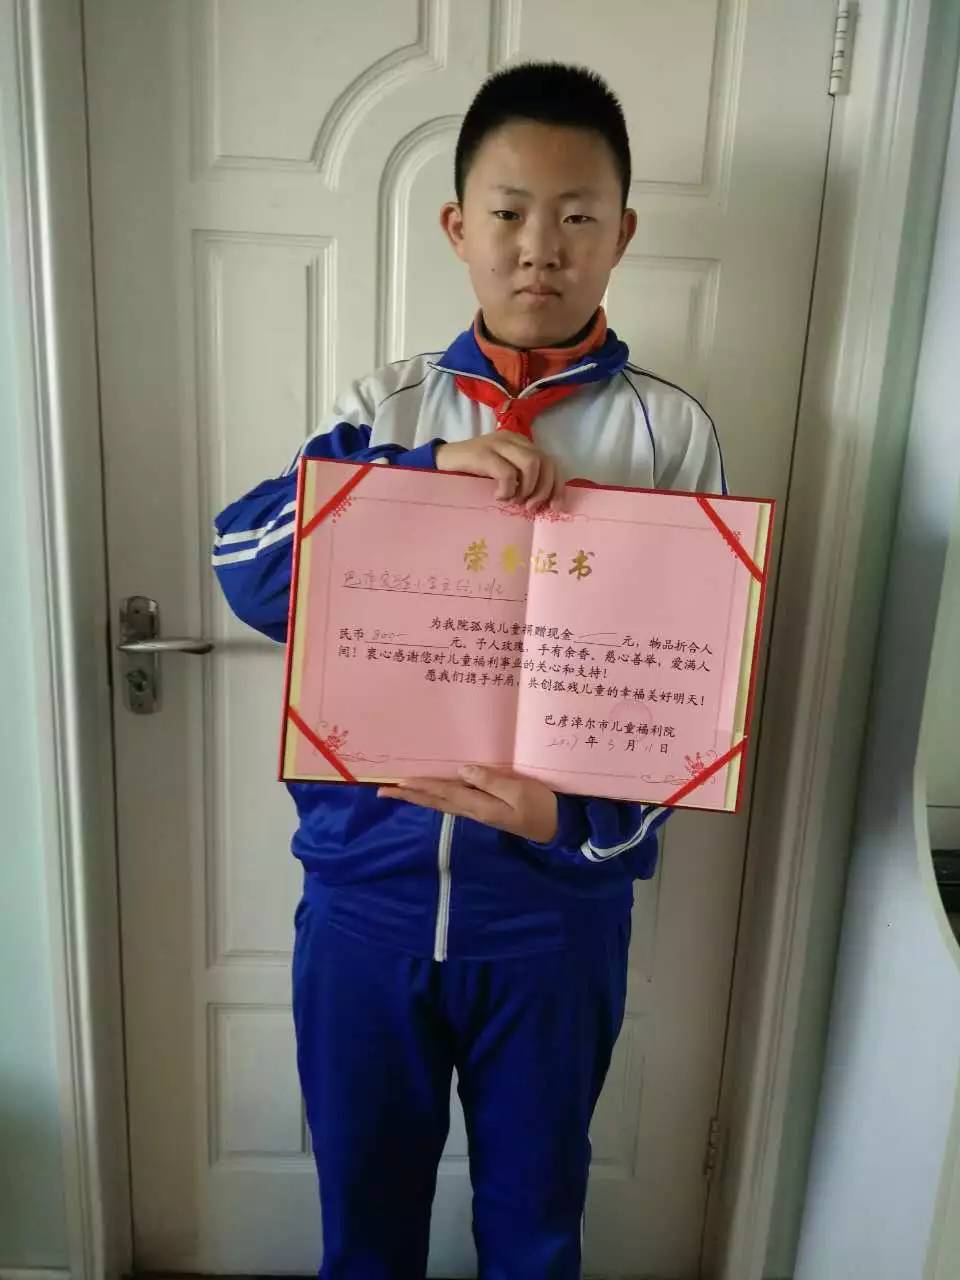 荣誉证书
巴彦实验小学五
为我院孤残儿童捐赠现金 元，物品折合人
民币 800 元。予人玫瑰，手有余香。慈心善举，爱满人
间！衷心感谢您对儿童福利事业的关心和支持！
愿我们携手并肩，共创孤残儿童的幸福美好明天！
巴彦淖尔市儿童福利院
2017 年 3 月 11 日